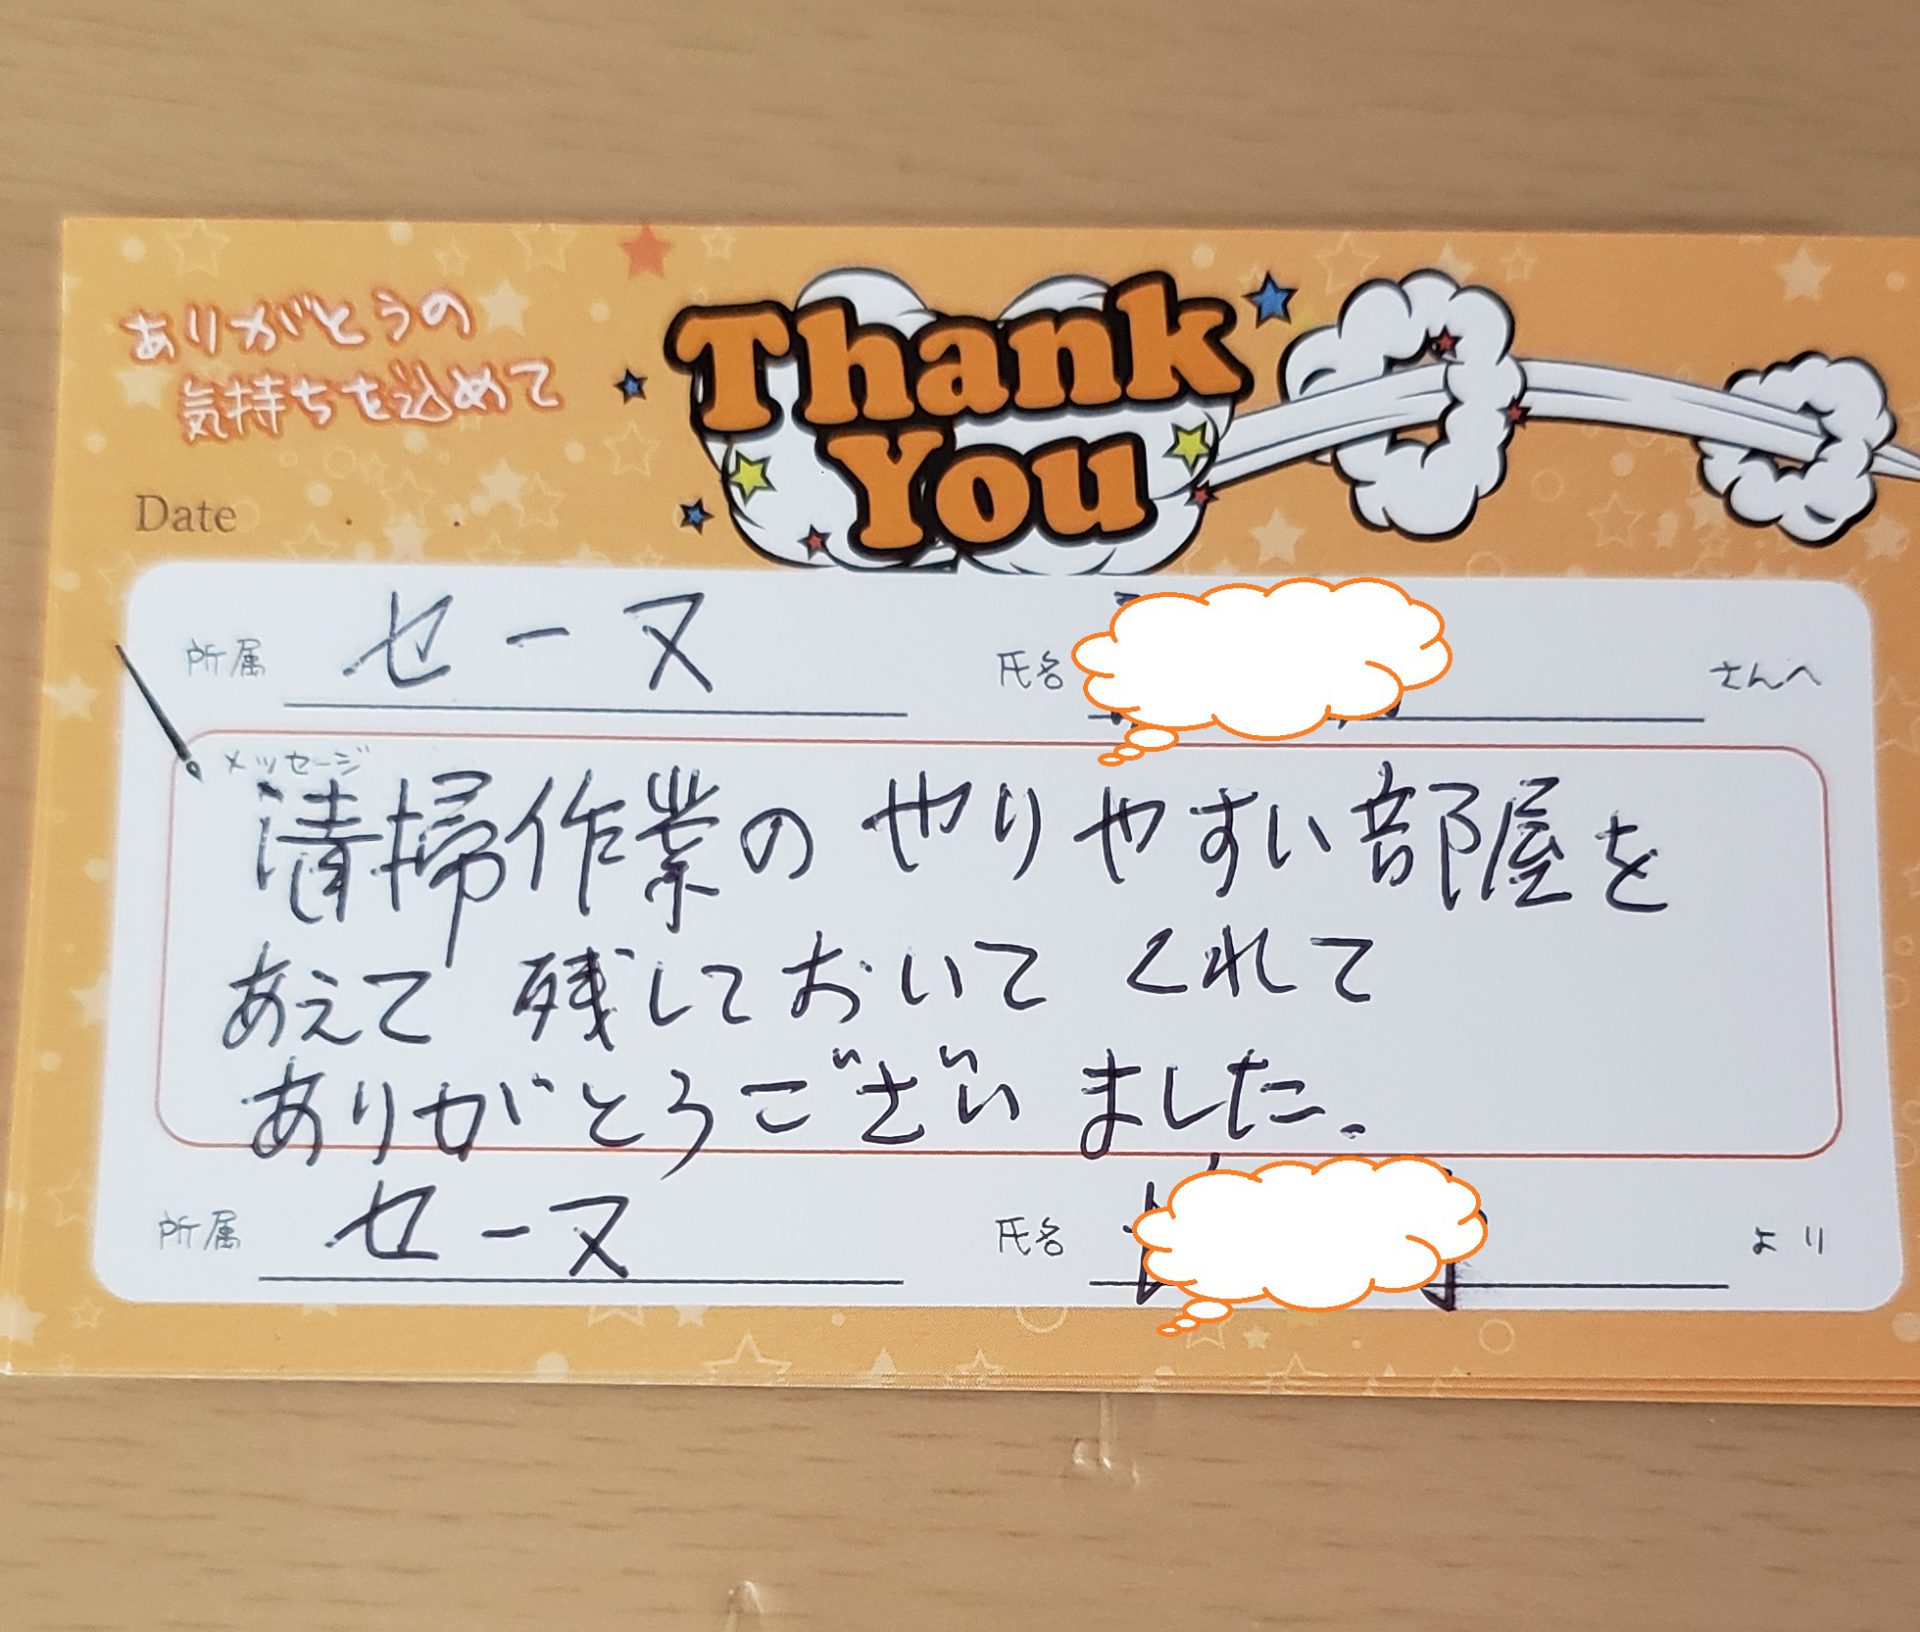 ありがとうの
気持ちを込めて
Thank
You
Date . .
所属 セーヌ 氏名 さんへ
メッセージ
清掃作業の やりやすい部屋を
あえて 残しておいて くれて
ありがとうございました。
所属 セーヌ 氏名 より